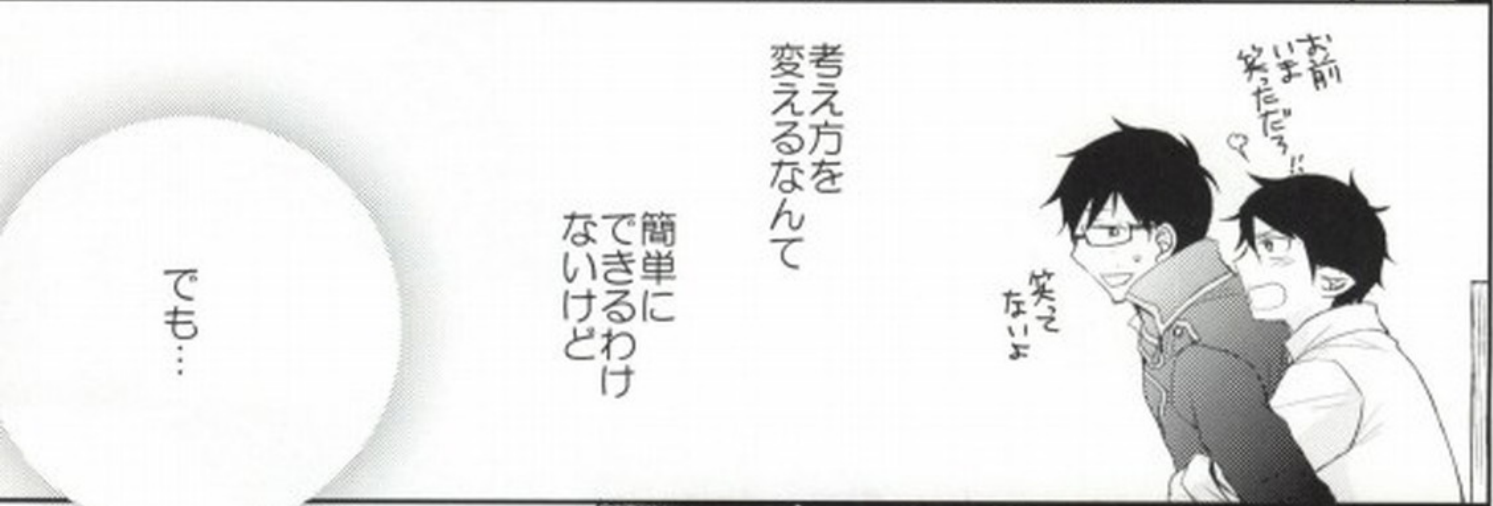 お前
いま
笑っただろ!!
笑って
ないよ
考え方を
変えるなんて
簡単に
できるわけ
ないけど
でも…